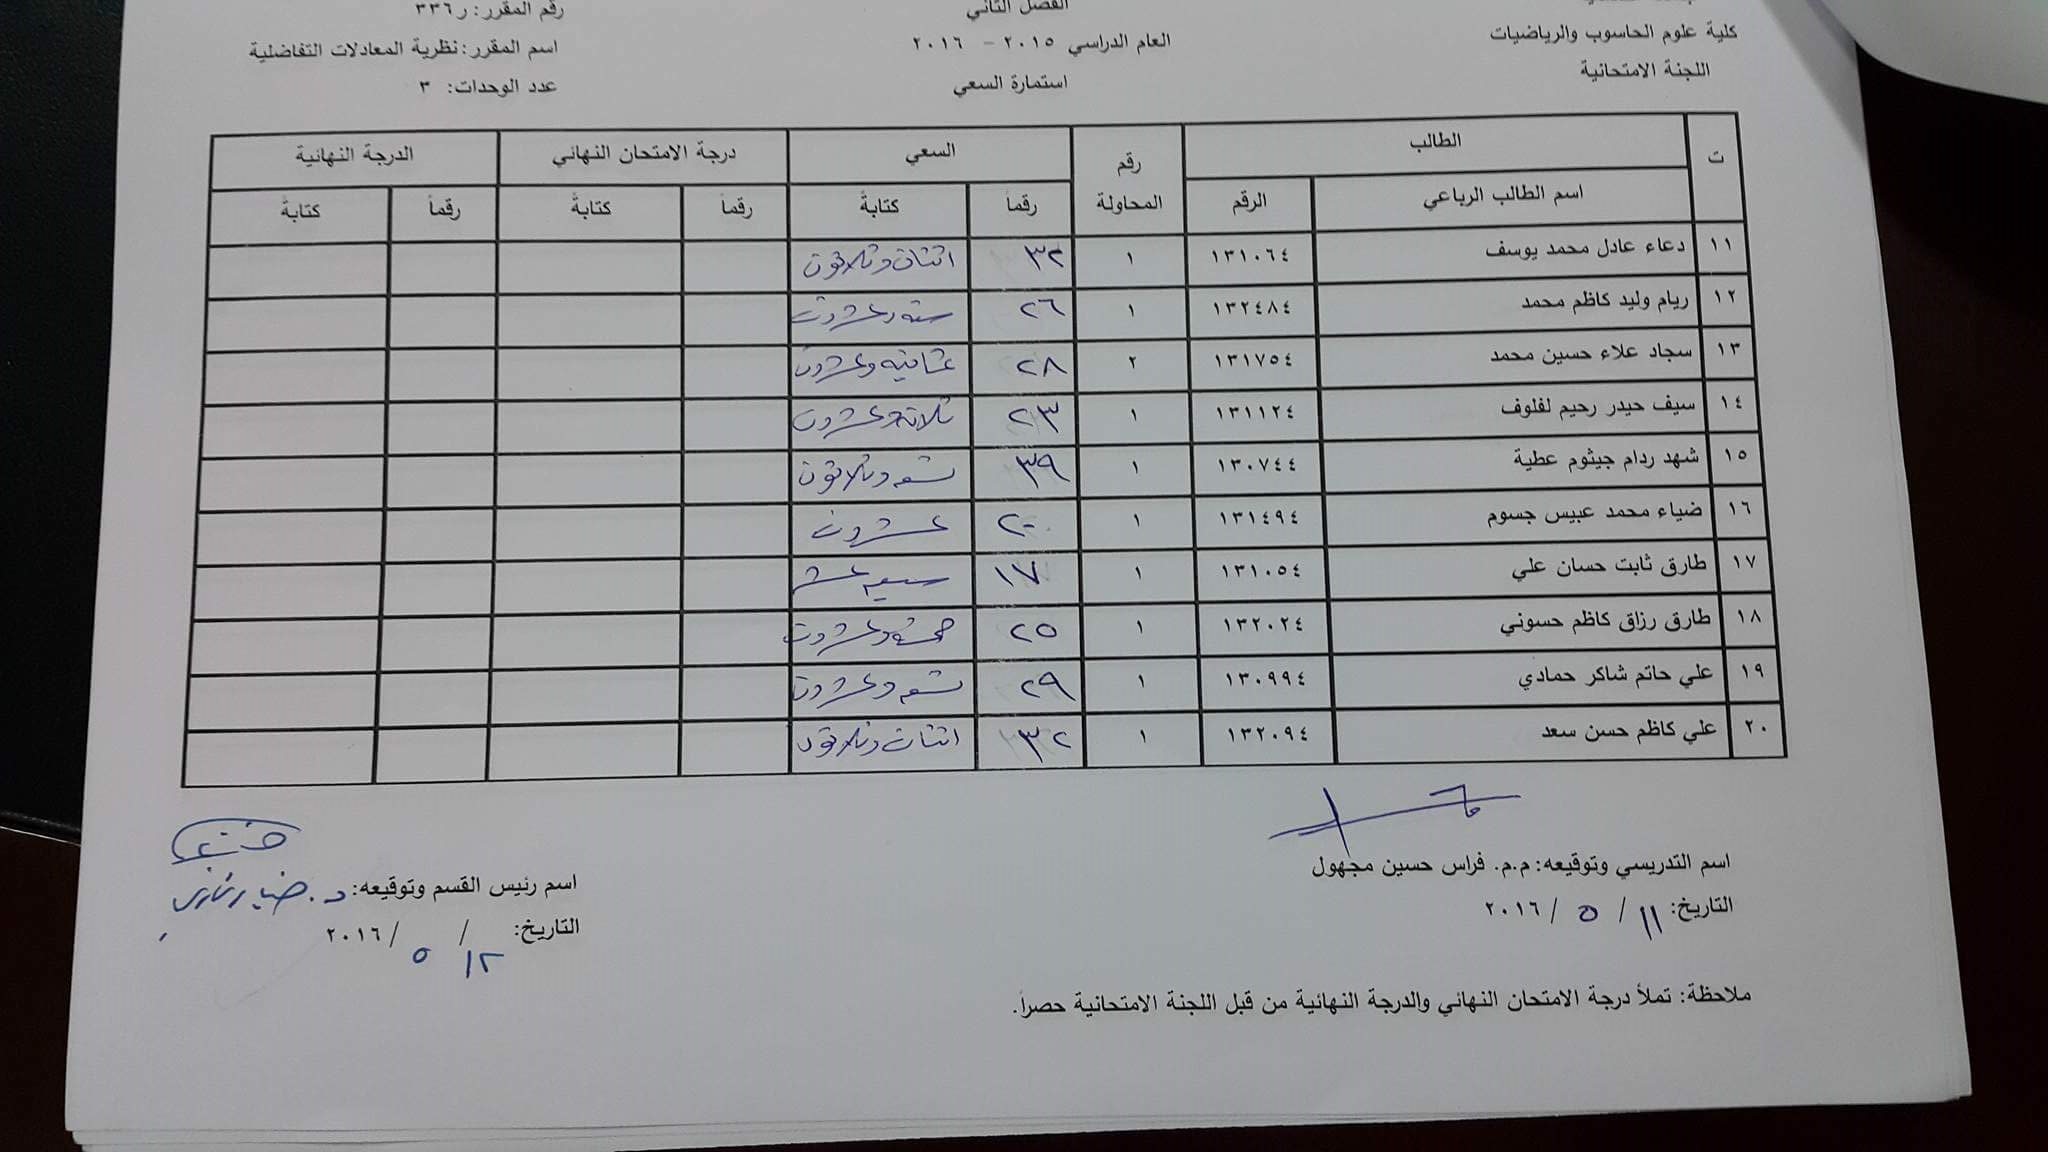 كلية علوم الحاسوب والرياضيات
اللجنة الامتحانية
الفصل الثاني
العام الدراسي ٢٠١٥ - ٢٠١٦
استمارة السعي
رقم المقرر: ر٣٣٦
اسم المقرر: نظرية المعادلات التفاضلية
عدد الوحدات: ٣
ت الطالب رقم المحاولة السعي درجة الامتحان النهائي الدرجة النهائية
اسم الطالب الرباعي الرقم رقماً كتابةً رقماً كتابةً رقماً كتابةً
١١ دعاء عادل محمد يوسف ١٣١٠٦٤ ١ ٣٢ اثنان وثلاثون
١٢ ريام وليد كاظم محمد ١٣٢٤٨٤ ١ ٢٦ ستة وعشرون
١٣ سجاد علاء حسين محمد ١٣١٧٥٤ ٢ ٢٨ ثمانية وعشرون
١٤ سيف حيدر رحيم لفلوف ١٣١١٢٤ ١ ٢٣ ثلاثة وعشرون
١٥ شهد ردام جيثوم عطية ١٣٠٧٤٤ ١ ٣٩ تسعة وثلاثون
١٦ ضياء محمد عبيس جسوم ١٣١٤٩٤ ١ ٢٠ عشرون
١٧ طارق ثابت حسان علي ١٣١٠٥٤ ١ ١٧ سبعة عشر
١٨ طارق رزاق كاظم حسوني ١٣٢٠٢٤ ١ ٢٥ خمسة وعشرون
١٩ علي حاتم شاكر حمادي ١٣٠٩٩٤ ١ ٢٩ تسعة وعشرون
٢٠ علي كاظم حسن سعد ١٣٢٠٩٤ ١ ٣٢ اثنان وثلاثون
اسم التدريسي وتوقيعه: م.م. فراس حسين مجهول
التاريخ: ١١ / ٥ / ٢٠١٦
اسم رئيس القسم وتوقيعه: د.
التاريخ: ١٢ / ٥ / ٢٠١٦
ملاحظة: تملأ درجة الامتحان النهائي والدرجة النهائية من قبل اللجنة الامتحانية حصراً.